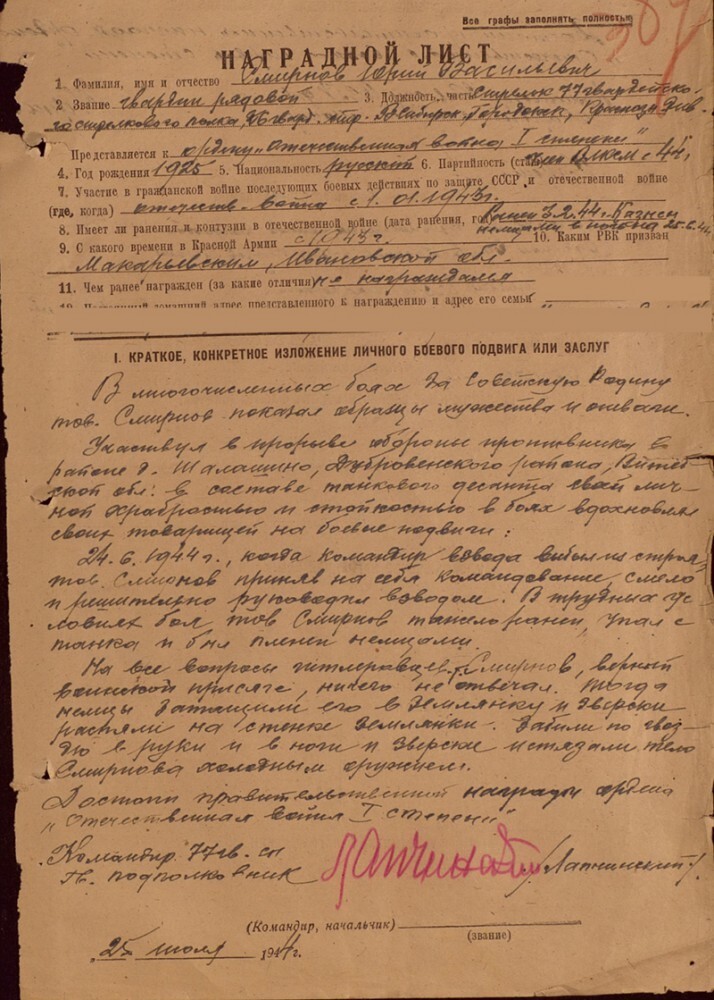 Все графы заполнять полностью
387
НАГРАДНОЙ ЛИСТ
1. Фамилия, имя и отчество Смирнов Юрий Васильевич
2 Звание гвардии рядовой 3. Должность, часть Стрелок 77 гвардейско-
го стрелкового полка, 26 гвард. стр. В. Сибирск. Городокск. Краснозн. Див.
Представляется к ордену „Отечественная война I степени"
4. Год рождения 1925 5. Национальность русский 6. Партийность член ВЛКСМ с 44 г.
7. Участие в гражданской войне последующих боевых действиях по защите СССР и отечественной войне
(где, когда) отечеств. война с 1.01.1943 г.
8. Имеет ли ранения и контузии в отечественной войне (дата ранения, ранен 3.2.44. Казнен
немцами 25.6.44
9. С какого времени в Красной Армии с 1943 г. 10. Каким РВК призван
Макарьевским, Ивановской обл.
11. Чем ранее награжден (за какие отличия) не награждался
домашний адрес представленного к награждению и адрес его семьи
I. КРАТКОЕ, КОНКРЕТНОЕ ИЗЛОЖЕНИЕ ЛИЧНОГО БОЕВОГО ПОДВИГА ИЛИ ЗАСЛУГ
В многочисленных боях за Советскую Родину
тов. Смирнов показал образцы мужества и отваги.
Участвуя в прорыве обороны противника в
районе д. Шалашино, Дубровенского района, Витеб-
ской обл. в составе танкового десанта своей лич-
ной храбростью и стойкостью в боях вдохновлял
своих товарищей на боевые подвиги:
24.6.1944 г., когда командир взвода выбыл из строя
тов. Смирнов приняв на себя командование, смело
и решительно руководил взводом. В трудных ус-
ловиях боя тов Смирнов тяжело ранен, упал с
танка и был пленен немцами.
На все вопросы гитлеровцев, Смирнов, верный
воинской присяге, ничего не отвечал. Тогда
немцы затащили его в землянку и зверски
распяли на стенке землянки. Забили по гвоз-
дю в руки и в ноги и зверски истязали тело
Смирнова холодным оружием.
Достоин правительственной награды ордена
„Отечественная война I степени"
Командир 77 гв. сп
гв. подполковник /Лапчинский/
(Командир, начальник) (звание)
25 июля 1944 г.